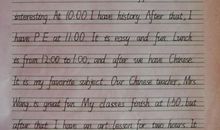 interesting. At 10:00 I have history. After that, I
have P.E. at 11:00. It is easy and fun. Lunch
is from 12:00 to 1:00, and after we have Chinese.
It is my favorite subject. Our Chinese teacher, Mrs
Wang, is great fun. My classes finish at 1:50, but
after that I have an art lesson for two hours. It